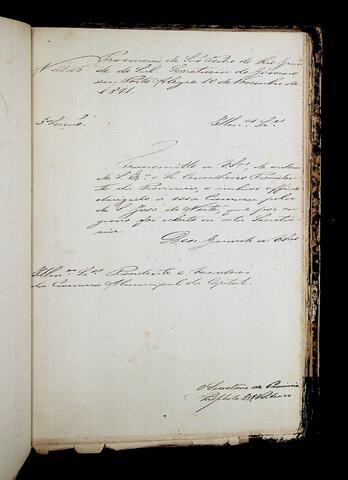 Provincia de São Pedro do Rio Gran
de do Sul. Secretaria do Governo
em Porto Alegre 10 de Novembro de
1871.
3ª Secção.
Illmos. Srs.
Transmitto a VSas. de ordem
de S. Exª. o Sr. Conselheiro Presiden
te da Provincia o incluso officio
dirigido a essa Camara pela
de S. José do Norte, que por en
gano foi aberto nesta Secreta
ria.
Deos Guarde a VSas.
Illmos. Srs. Presidente e Vereadores
da Camara Municipal da Capital.
O Secretario da Provincia